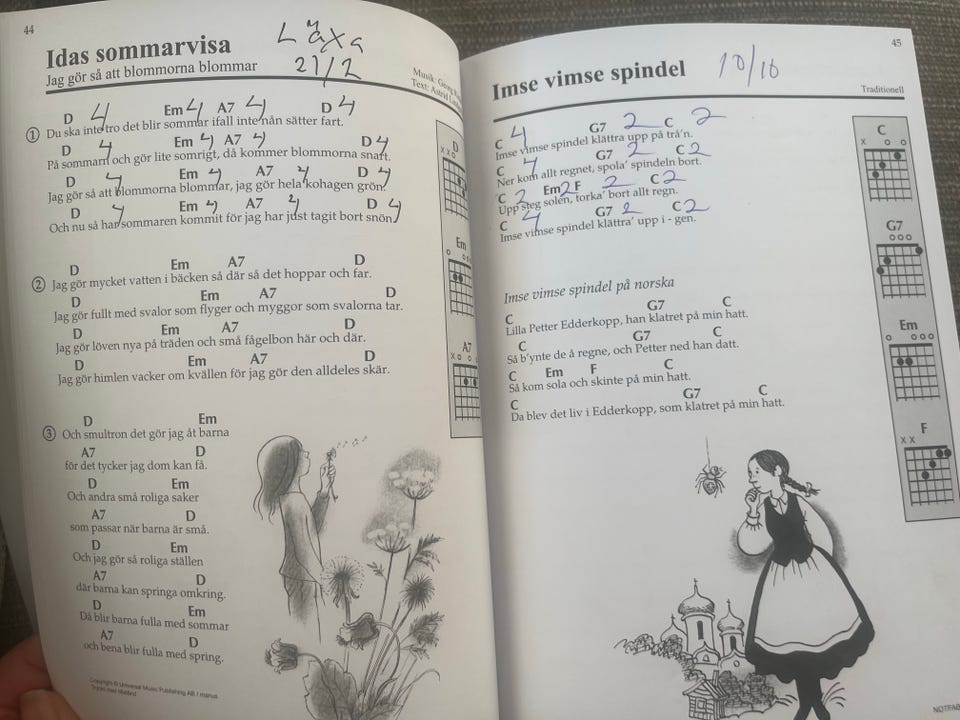 44
Idas sommarvisa
Läxa
21/2
Jag gör så att blommorna blommar
Musik: Georg
Text: Astrid
D 4 Em 4 A7 4 D 4
① Du ska inte tro det blir sommar ifall inte nån sätter fart.
D 4 Em 4 A7 4 D 4
På sommarn och gör lite somrigt, då kommer blommorna snart.
D 4 Em 4 A7 4 D 4
Jag gör så att blommorna blommar, jag gör hela kohagen grön.
D 4 Em 4 A7 4 D 4
Och nu så har sommaren kommit för jag har just tagit bort snön
D Em A7 D
② Jag gör mycket vatten i bäcken så där så det hoppar och far.
D Em A7 D
Jag gör fullt med svalor som flyger och myggor som svalorna tar.
D Em A7 D
Jag gör löven nya på träden och små fågelbon här och där.
D Em A7 D
Jag gör himlen vacker om kvällen för jag gör den alldeles skär.
D Em
③ Och smultron det gör jag åt barna
A7 D
för det tycker jag dom kan få.
D Em
Och andra små roliga saker
A7 D
som passar när barna är små.
D Em
Och jag gör så roliga ställen
A7 D
där barna kan springa omkring.
D Em
Då blir barna fulla med sommar
A7 D
och bena blir fulla med spring.
Copyright © Universal Music Publishing AB / manus
Tryckt med tillstånd
D
x x o
Em
o
A7
x o
45
Imse vimse spindel
10/10
Traditionell
C 4 G7 2 C 2
Imse vimse spindel klättra upp på trå'n.
C 4 G7 2 C 2
Ner kom allt regnet, spola' spindeln bort.
C 2 Em 2 F 2 C 2
Upp steg solen, torka' bort allt regn.
C 4 G7 2 C 2
Imse vimse spindel klättra' upp i - gen.
Imse vimse spindel på norska
C G7 C
Lilla Petter Edderkopp, han klatret på min hatt.
C G7 C
Så b'ynte de å regne, och Petter ned han datt.
C Em F C
Så kom sola och skinte på min hatt.
C G7 C
Da blev det liv i Edderkopp, som klatret på min hatt.
C
x o o
G7
o o o
Em
o o o o
F
x x